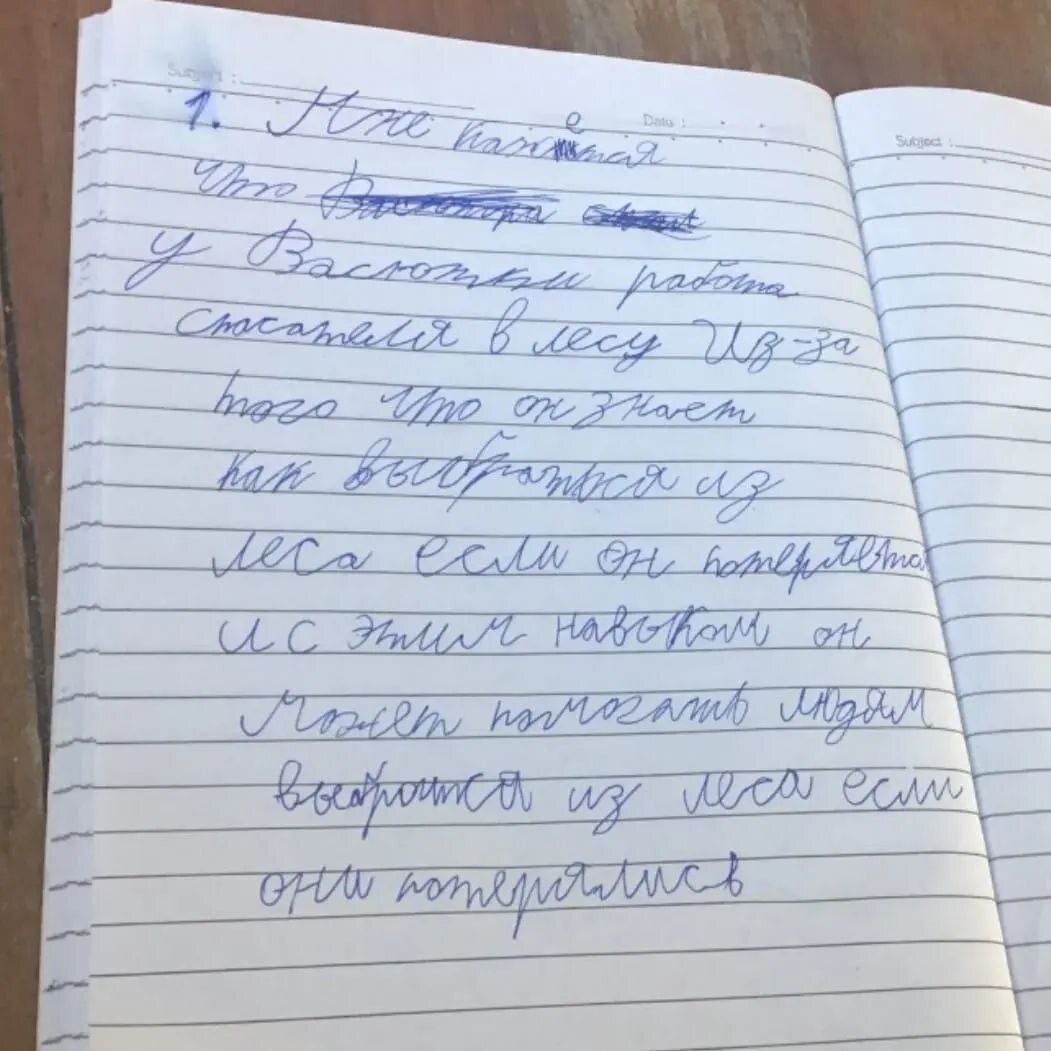 Subject :
Date :
Subject :
1. Мне кажется
что
у Васютки работа
спасателя в лесу Из-за
того что он знает
как выбраться из
леса если он потеряется
и с этим навыком он
может помогать людям
выбратся из леса если
они потерялись